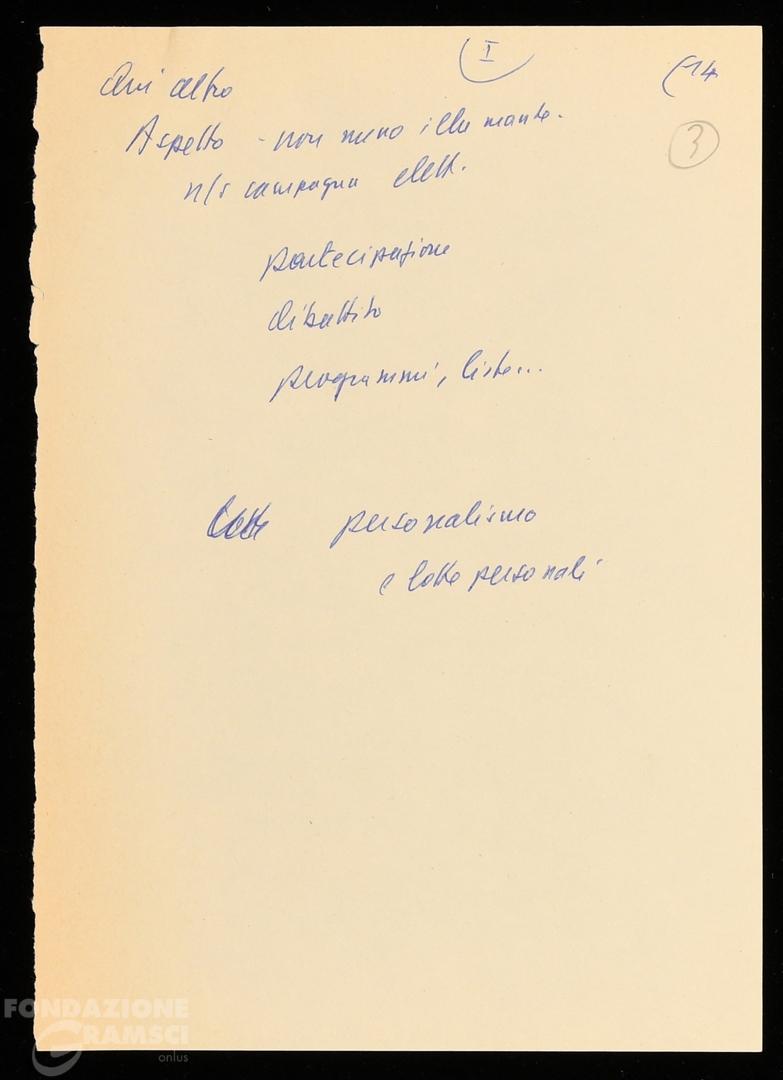 I
14
3
Qui altro
Aspetto - non meno illuminante.
n/s campagna elett.
partecipazione
dibattito
programmi, liste...
personalismo
e lotte personali
FONDAZIONE
GRAMSCI
onlus